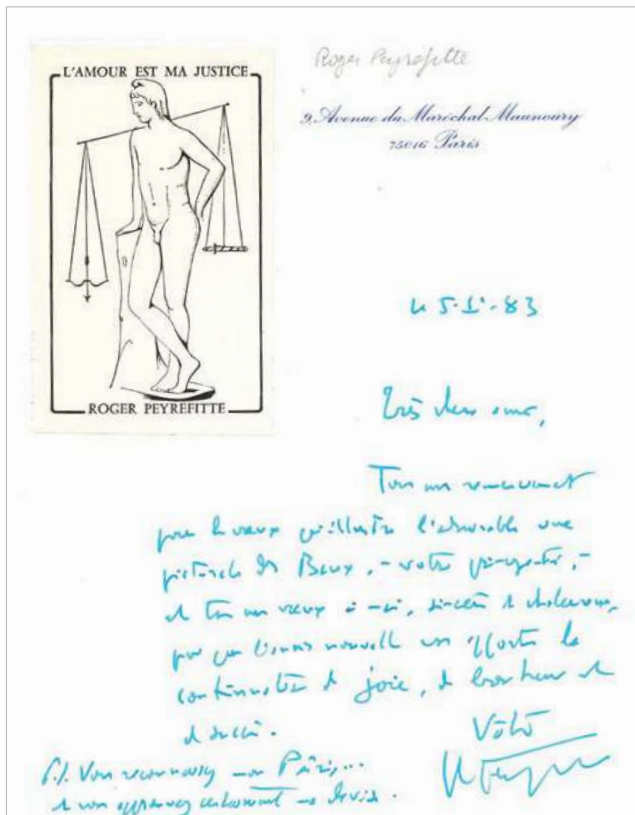 L'AMOUR EST MA JUSTICE
ROGER PEYREFITTE
Roger Peyrefitte
9, Avenue du Maréchal Maunoury
75016 Paris
Très cher ami,
Tous mes remerciements
pour les vœux qu'illustre l'admirable vue
picturale des Baux, - votre
et tous mes vœux à moi, sincères et chaleureux,
pour que l'année nouvelle vous apporte la
continuation de joie, de bonheur et
de succès.
Vôtre
P.S. Vous reconnaissez mon Pâris...
et vous apprenez certainement ma devise.